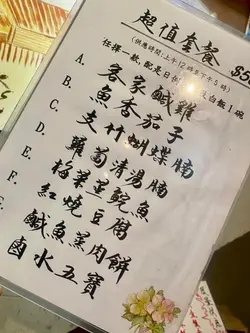 超值套餐 $5
(供應時間:上午12時至下午5時)
任擇一款,配是日 及白飯1碗
A. 客家鹹雞
B. 魚香茄子
C. 支竹蝴蝶腩
D. 蘿蔔清湯腩
E. 梅菜蒸鯇魚
F. 紅燒豆腐
鹹魚蒸肉餅
鹵水五寶